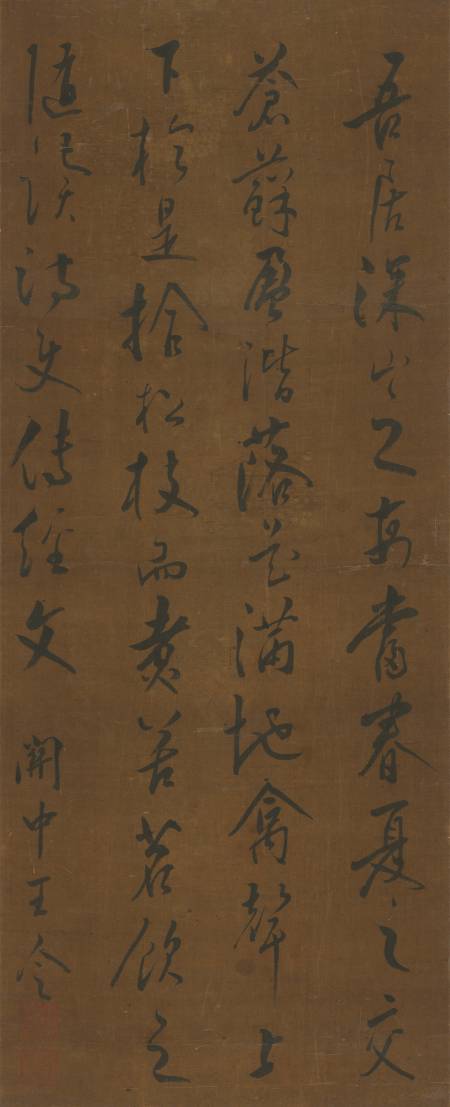 吾居深山之當春夏之交
蒼蘚盈階落花滿地禽聲上
下於是拾松枝而煮苦茗飲之
隨意讀詩史傳經文 關中王令